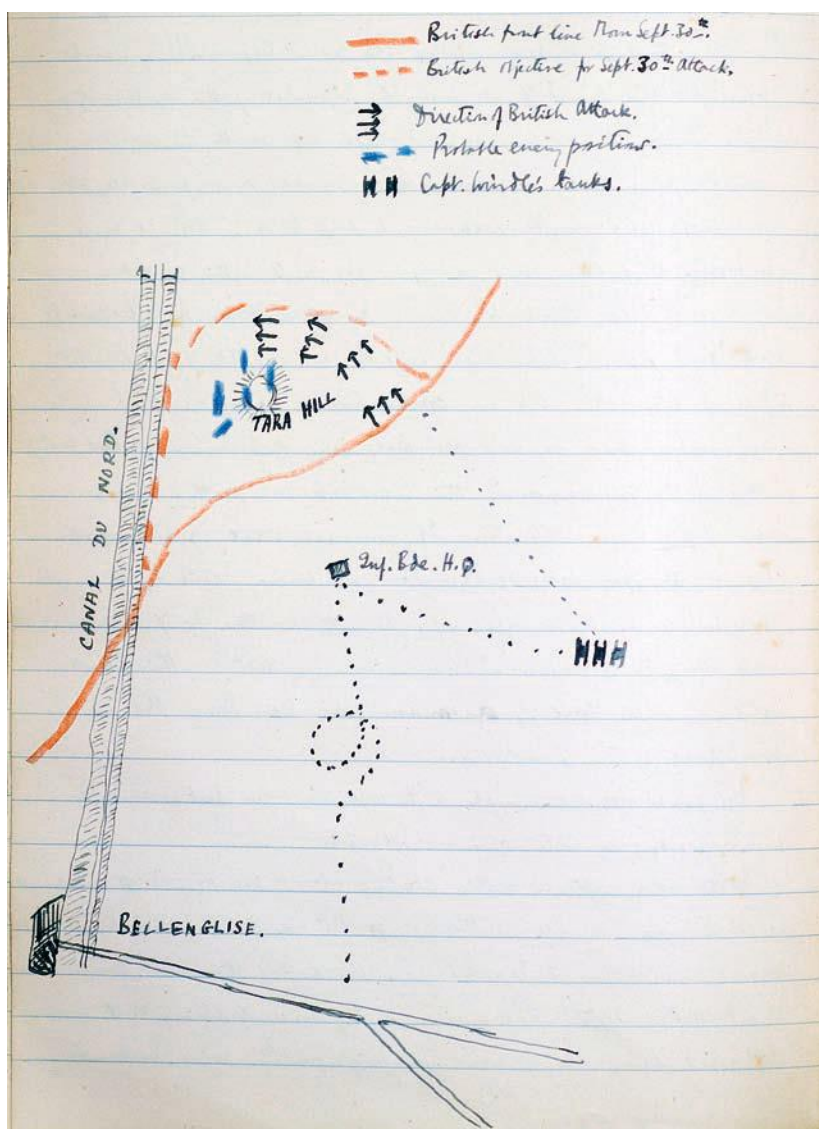 British front line Morn Sept. 30th.
British Objective for Sept. 30th Attack.
Direction of British Attack.
Probable enemy positions.
Capt. Windle's tanks.
TARA HILL
CANAL DU NORD.
Inf. Bde. H.Q.
BELLENGLISE.